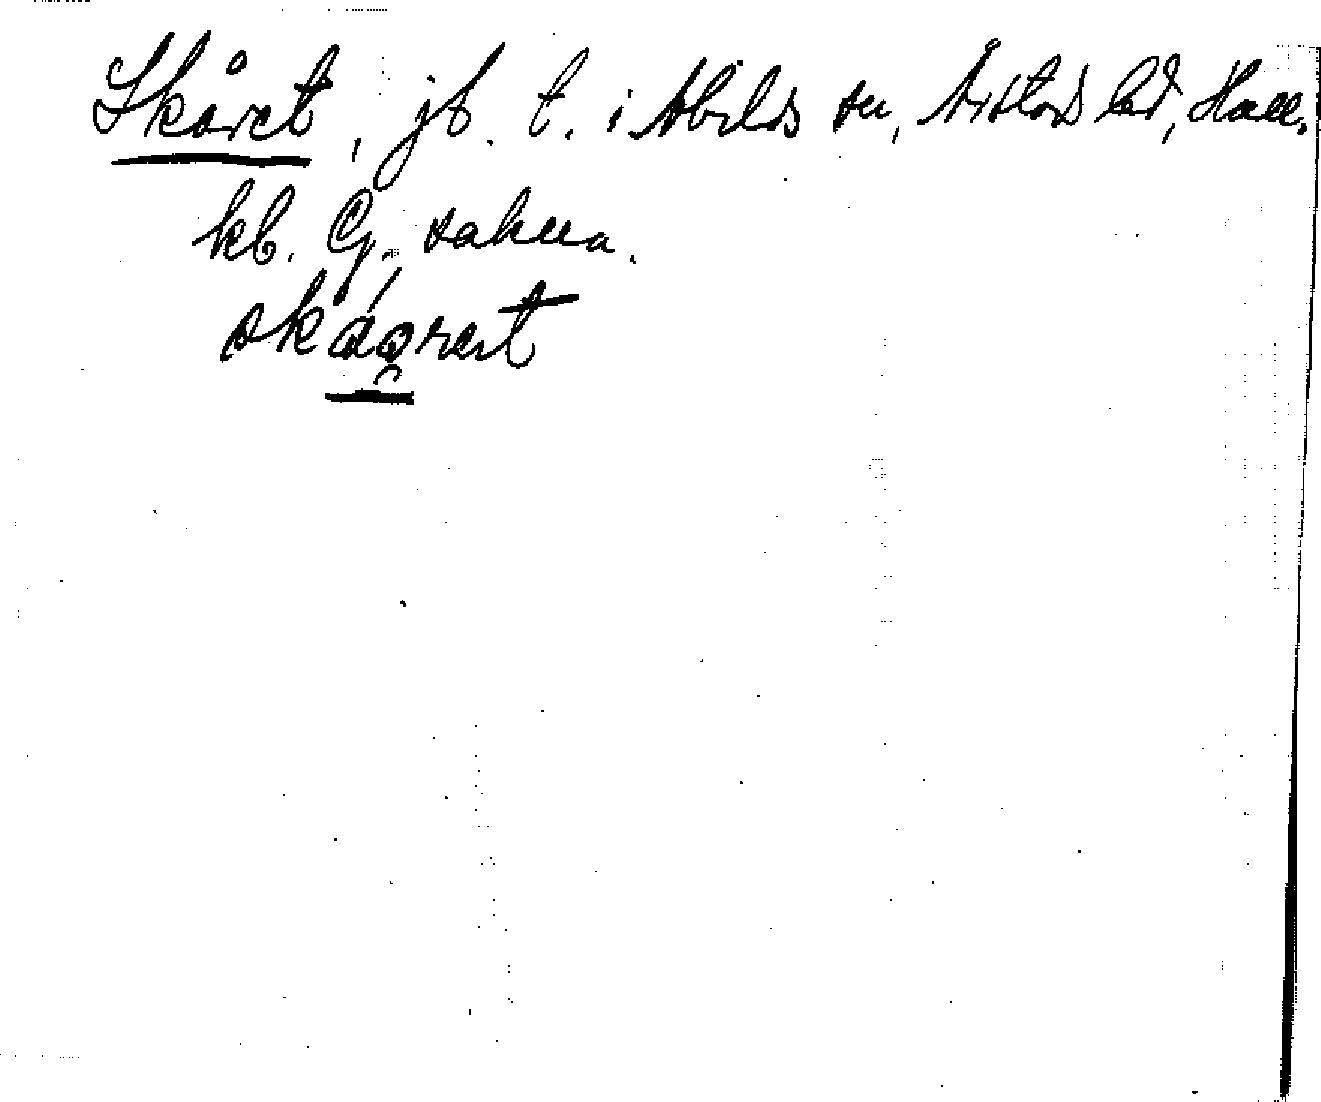 Skåret, jb. t. i Abilds sn, Årstads hd, Hall.
kb. G, sakna.
skáǫret